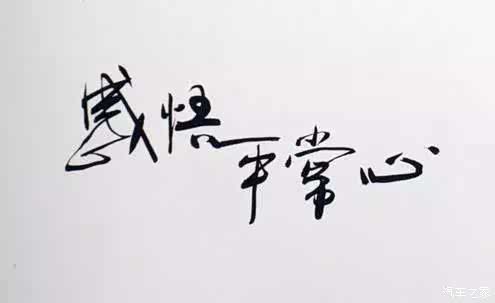 感悟平常心
汽车之家